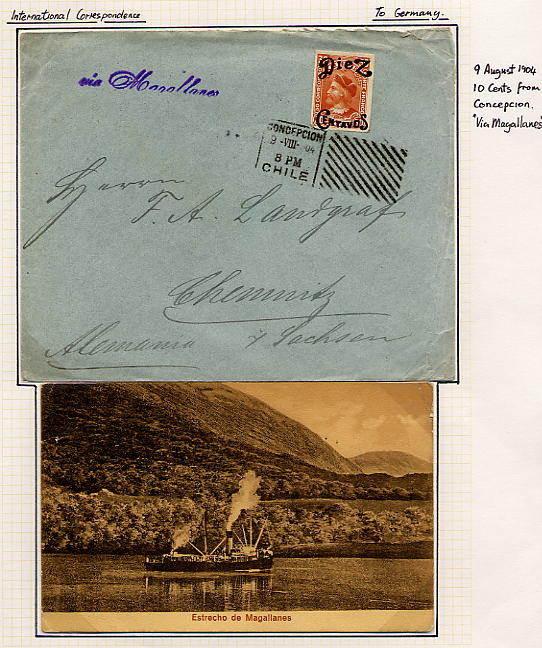 International Correspondence
To Germany.
9 August 1904
10 Cents from
Concepcion.
"Via Magallanes"
via Magallanes
DieZ
CENTAVOS
CONCEPCION
9 -VIII- 04
8 PM
CHILE
Herrn
F. A. Landgraf
Chemnitz
Alemania
i/ Sachsen
Estrecho de Magallanes